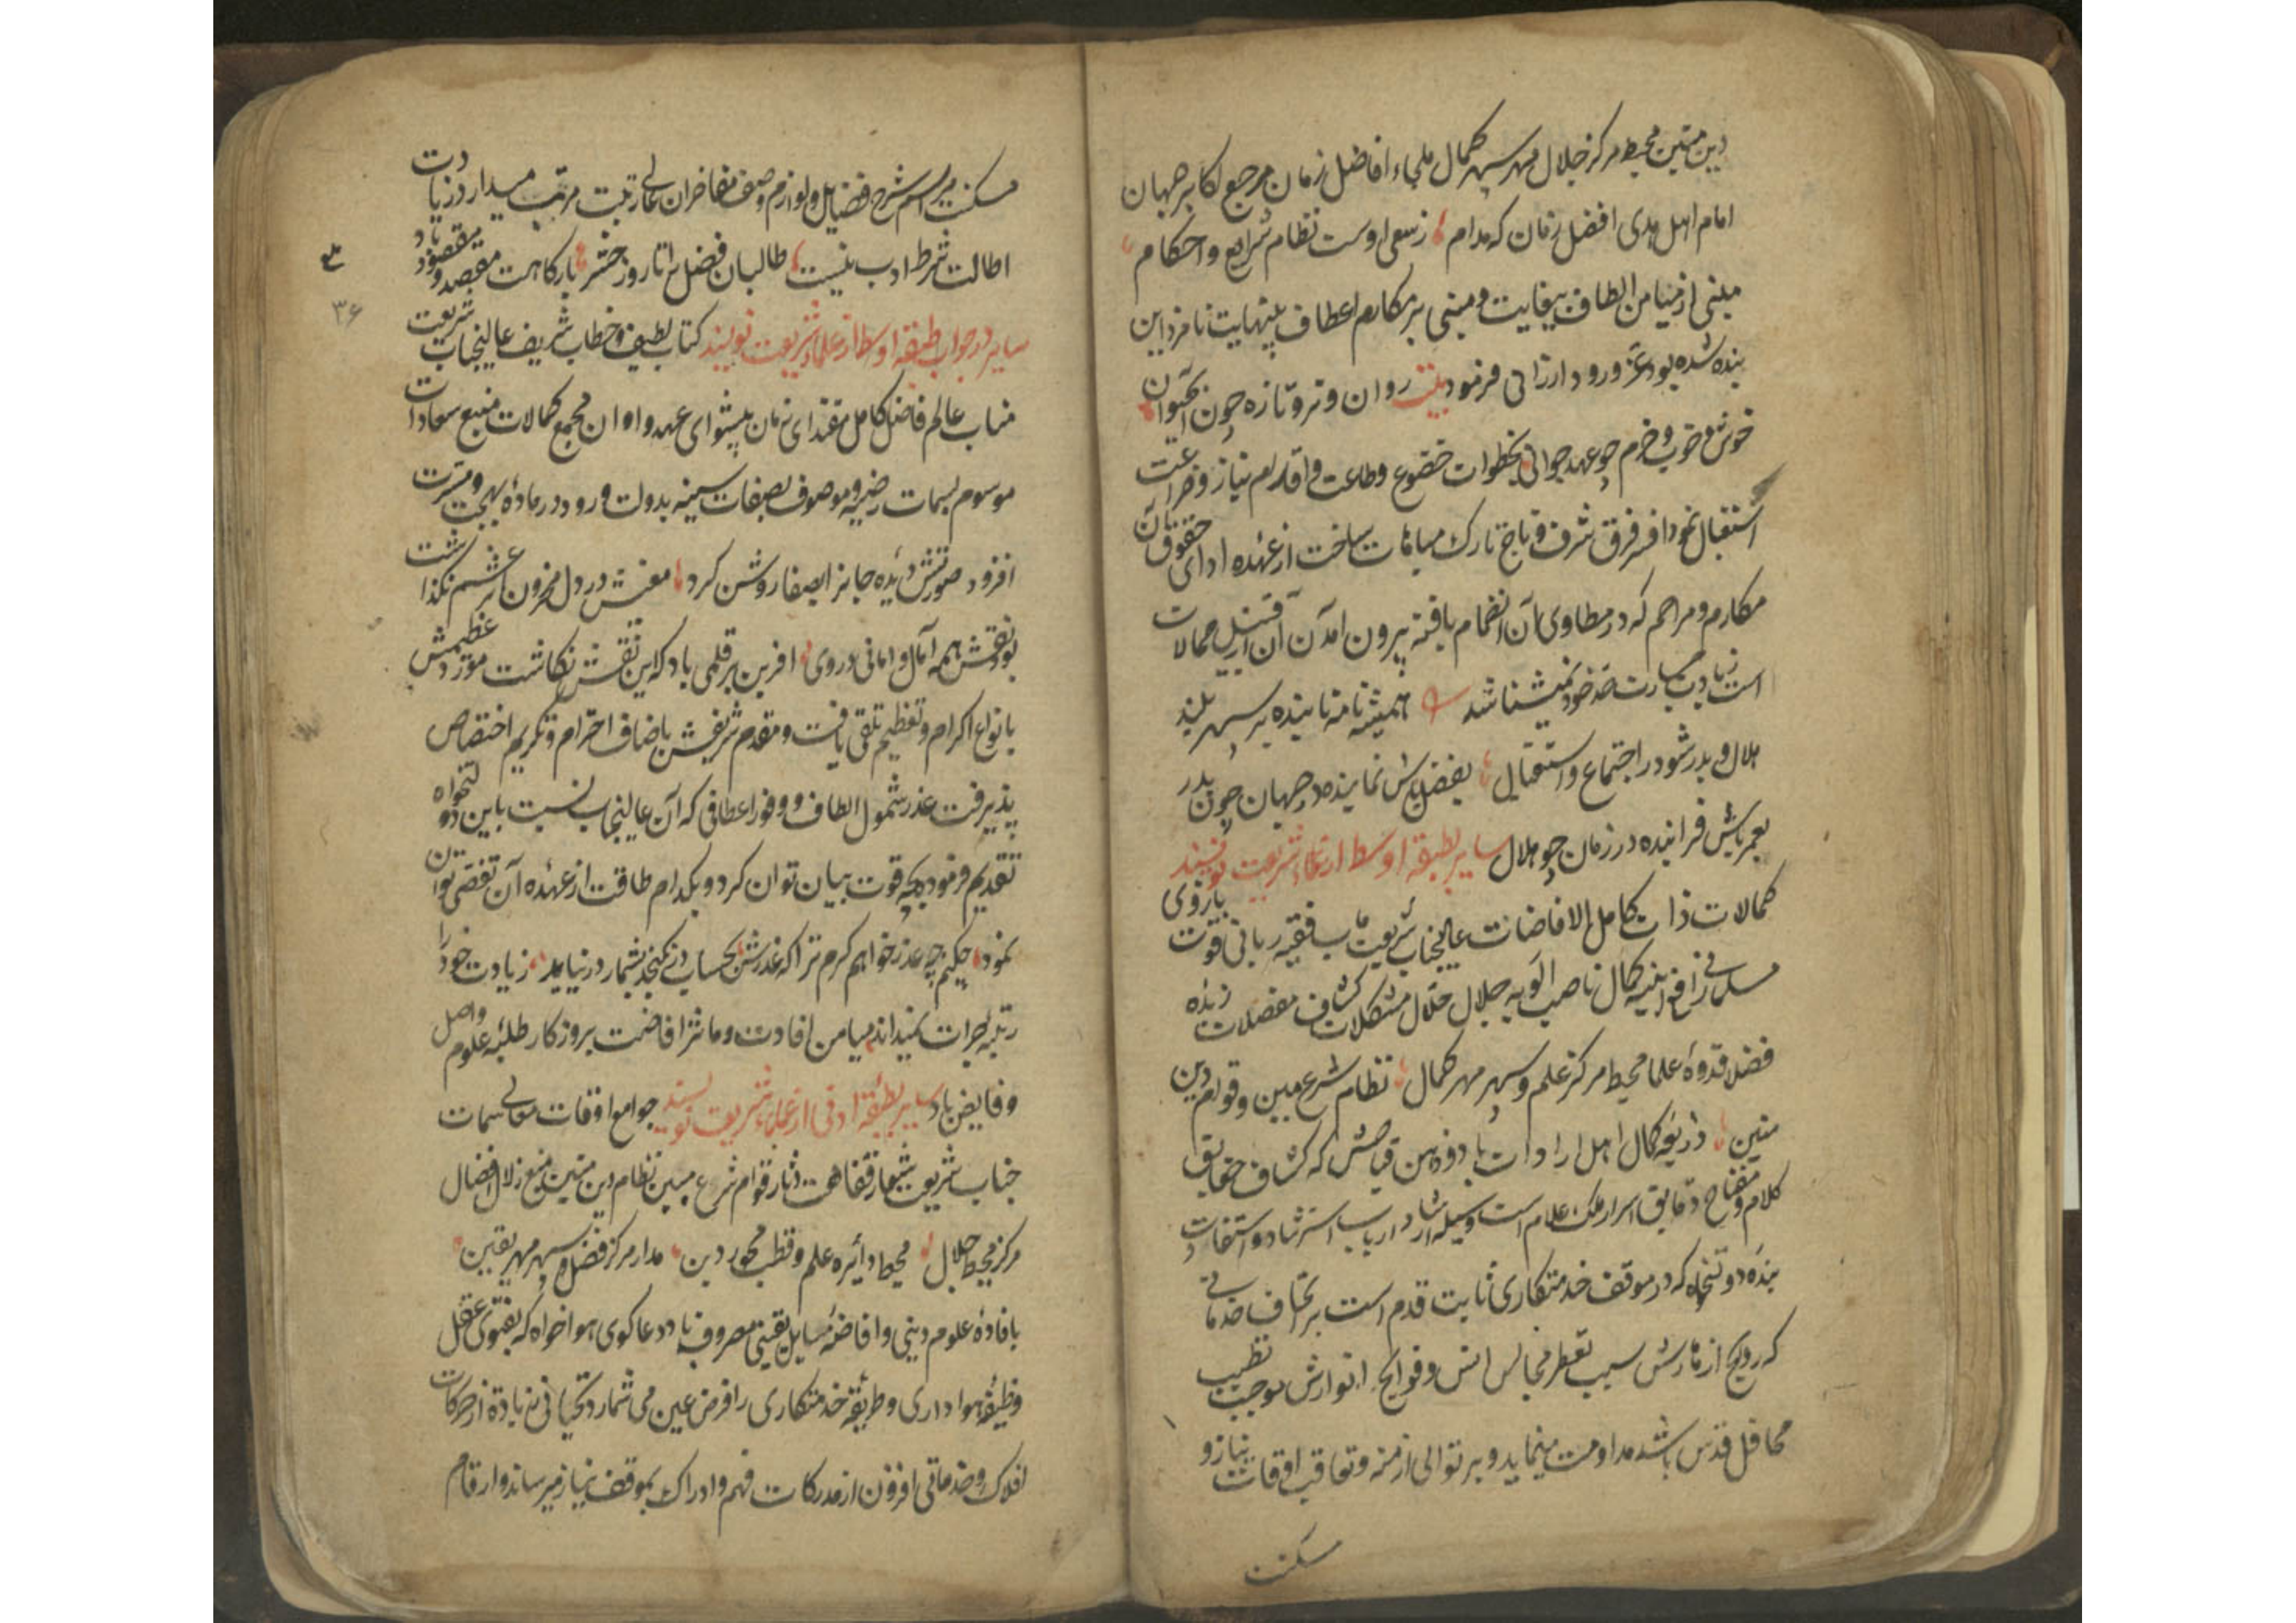 دین متین محیط مرکز جلال مهر سپهر کمال ملجاء افاضل زمان مرجع اکابر جهان
امام اهل هدی افضل زمان که مدام زسعی اوست نظام شرایع و احکام
مبنی از میامن الطاف بیغایت و مبنی بر مکارم اعطاف بینهایت نامزد این
بنده شده بود عز ورود ارزانی فرمود بیت روان و تر و تازه چون آب حیوان
خوش و خوب و خرم چو عهد جوانی بخطوات خضوع و طاعت و اقدام نیاز و ضراعت
استقبال نمود افسر فرق شرف و تاج تارک مباهات ساخت از عهده ادای حقوق آن
مکارم و مراحم که در مطاوی آن انضمام یافته بیرون آمدن از آن قبیل محالات
است زیادت جسارت حد خود نمیشناشد همیشه تا مه تابنده بر سپهر بلند
هلال و بدر شود در اجتماع و استقبال بفضل باش نماینده در جهان چون بدر
بعمر باش فزاینده در زمان چو هلال سایر بطبقه اوسط از علماء شریعت نویسند
کمالات ذات کامل الافاضات عالیجناب شریعت مآب فقیه ربانی قوت بازوی
مسلمانی رافع ابنیه کمال ناصب الویه جلال حلال مشکلات کشاف معضلات زبده
فضلا قدوه علما محیط مرکز علم و سپهر مهر کمال نظام شرع مبین و قوام دین
متین ذریعه کمال اهل ارادات باد و ذهن فیاضش که کشاف حقایق
کلام و مفتاح دقایق اسرار ملک علام است وسیله ارشاد ارباب استرشاد و استفادت
بنده دولتخواه که در موقف خدمتکاری ثابت قدم است بر تحاف خدماتی
که روایح ازهارش سبب تعطر مجالس انس و فوایح انوارش موجب تطییب
محافل قدس باشد مداومت مینماید و بر توالی ازمنه و تعاقب اوقات نیاز و
مسکنت
مسکنت مراسم شرح فضایل و لوازم وصف مفاخر ان عالی رتبت مرتب میدارد زیادت
اطالت شرط ادب نیست طالبان فضل را تا روز حشر بارکاهت مقصد و مقصود باد
۳۶
سایر در جواب طبقه اوسط از علماء شریعت نویسند کتاب لطیف و خطاب شریف عالیجناب شریعت
مناب عالم فاضل کامل مقتدای زمان پیشوای عهد و اوان مجمع کمالات منبع سعادات
موسوم بسمات رضیه و موصوف بصفات سنیه بدولت ورود در ماده بهجت و مسرت
افزود صورتش دیده جانرا بصفا روشن کرد معنیش در دل محزون اثر غم نگذاشت
بود نقش همه آمال و امانی در وی آفرین بر قلمی باد که این نقش نکاشت مورد عظیمش
بانواع اکرام و تعظیم تلقی یافت و مقدم شریفش باصناف احترام و تکریم اختصاص
پذیرفت عذر شمول الطاف و وفور اعطافی که آن عالیجناب نسبت باین دولتخواه
تقدیم فرمود بچه قوت بیان توان کرد و بکدام طاقت از عهده آن تفصی توان
نمود چکنم چه عذر خواهم کرم ترا که عذرش بحساب در نکنجد بشمار در نیاید زیادت خود را
رتبه جرات نمیداند میامن افادت و ماثر افاضت بروزکار طلبه علوم واصل
و فایض باد سایر بطبقه ادنی از علماء شریعت نویسند جوامع اوقات معالی سمات
جناب شریعت شعار فقاهت دثار قوام شرع مبین نظام دین متین منبع زلال افضال
مرکز محیط جلال محیط دائره علم و قطب محور دین مدار مرکز فضل و سپهر مهر یقین
بافاده علوم دینی و افاضه مسایل یقینی مصروف باد دعاکوی هواخواه که بفتوی عقل
وظیفه هواداری و طریقه خدمتکاری را فرض عین می شمارد تحیاتی زیاده از حرکات
افلاک و خدماتی افزون از مدرکات فهم و ادراک بموقف نیاز میرساند و ارقام